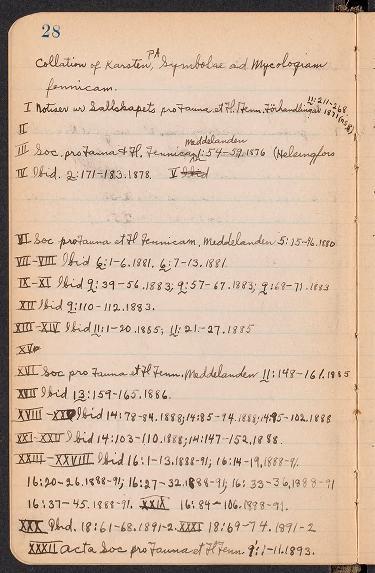 28
Collation of Karsten, PA, Symbolae ad Mycologiam
fennicam.
I Notiser ur Sallskapets pro Fauna et Fl. Fenn. Förhandlingar 11:211-268 1871
II
III Soc. pro Fauna et Fl. Fennica Meddelanden 1:54-59.1876 (Helsingfors
IV Ibid. 2:171-183.1878. V Ibid
VI Soc pro Fauna et Fl Fennicam, Meddelanden 5:15-46.1880
VII-VIII Ibid 6:1-6.1881. 6:7-13.1881
IX-XI Ibid 9:39-56.1883; 9:57-67.1883; 9:68-71.1883
XII Ibid 9:110-112.1883.
XIII-XIV Ibid 11:1-20.1885; 11:21-27.1885
XV
XVI Soc pro Fauna et Fl Fenn. Meddelanden 11:148-161.1885
XVII Ibid 13:159-165.1886.
XVIII-XX Ibid 14:78-84.1888; 14:85-94.1888; 14:95-102.1888
XXI-XXII Ibid 14:103-110.1888; 14:147-152.1888.
XXIII-XXVIII Ibid 16:1-13.1888-91; 16:14-19.1888-91.
16:20-26.1888-91; 16:27-32.1888-91; 16:33-36.1888-91
16:37-45.1888-91. XXIX 16:84-106.1888-91.
XXX Ibid. 18:61-68.1891-2. XXXI 18:69-74.1891-2
XXXII Acta Soc pro Fauna et Fl Fenn 9:1-11.1893.